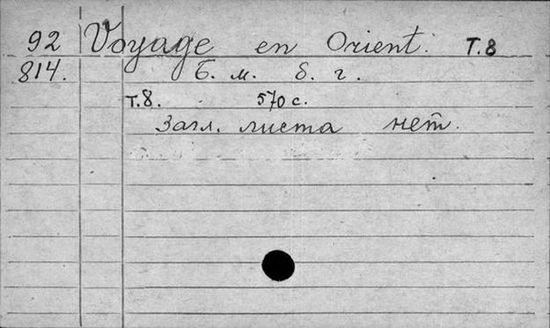 92 Voyage en Orient. Т.8
814. Б. м. б. г.
т.8. 570 с.
Загл. листа нет.